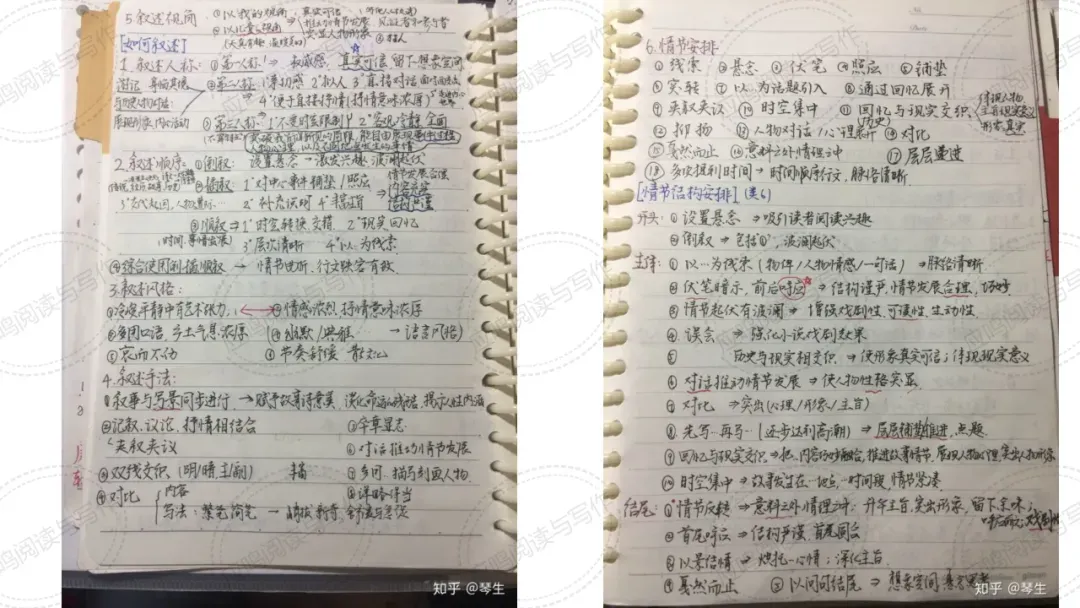 5.叙述视角
①以我的视角:真实可信
②以儿童视角
[如何叙述]
1.叙述人称:①第一人称:亲切感,真实可信 留下想象空间
②第二人称:1°亲切感 2°拟人 3°直接对话
4°便于直接抒情(抒情意味浓厚)
③第三人称 1°不受时空限制 2°客观完整 全面
2.叙述顺序:①倒叙:设置悬念→激发兴趣 波澜起伏
②插叙 1°对中心事件铺垫/照应
2°补充说明
③顺叙⇒1°时空转换,交错 2°现实回忆
(时间.事情发展) 3°层次清晰 4°以…为线索
④综合使用倒、插、顺叙→情节曲折,行文跌宕有致
3.叙述风格:
①冷峻平静中有艺术张力 ②情感浓烈,抒情意味浓厚
③多用口语,乡土气息浓厚 ④幽默/典雅 →语言风格)
⑤哀而不伤 ⑥节奏舒缓 散文化
4.叙述手法:
①叙事与写景同步进行→赋予故事诗意美,淡化
②记叙、议论、抒情相结合 ⑤卒章显志
夹叙夹议 ⑥对话推动情节发展
③双线交织(明/暗 主/副) 丰富
④对比 内容 ⑧详略得当
写法:繁笔 简笔→
6.情节安排
①线索 ②悬念 ③伏笔 ④照应 ⑤铺垫
⑥突转 ⑦以…为话题引入 ⑧通过回忆展开
⑨夹叙夹议 ⑩时空集中 ⑪回忆与现实交织
(历史)
⑫抑扬 ⑬人物对话/心理展开 ⑭对比
⑮戛然而止 ⑯意料之外情理之中 ⑰层层递进
⑱多次提到时间→时间顺序行文,脉络清晰
[情节结构安排](类6)
开头:①设置悬念⇒吸引读者阅读兴趣
②倒叙⇒包括①,波澜起伏
主体:①以…为线索(物件/人物情感/一句话)⇒脉络清晰
②伏笔暗示,前后呼应⇒结构严谨,情节发展合理,巧妙
③情节起伏有波澜⇒增强戏剧性,可读性,生动性
④误会⇒强化小说戏剧效果
⑤历史与现实相交织⇒使形象真实可信;体现现实意义
⑥对话推动情节发展⇒使人物性格突显
⑦对比⇒突出(心理/形象/主旨)
⑧先写…再写…(逐步达到高潮)⇒层层铺垫推进,点题
⑨回忆与现实交织⇒
⑩时空集中⇒故事发生在一地点,一时间段,情节紧凑
结尾:①情节反转⇒意料之外情理之中:升华主旨,突出形象,留下余味;
②首尾呼应⇒结构严谨,首尾圆合
③以景结情⇒烘托…心情;深化主旨
④戛然而止 ⑤以问句结尾⇒想象空间
知乎 @琴生
知乎 @琴生